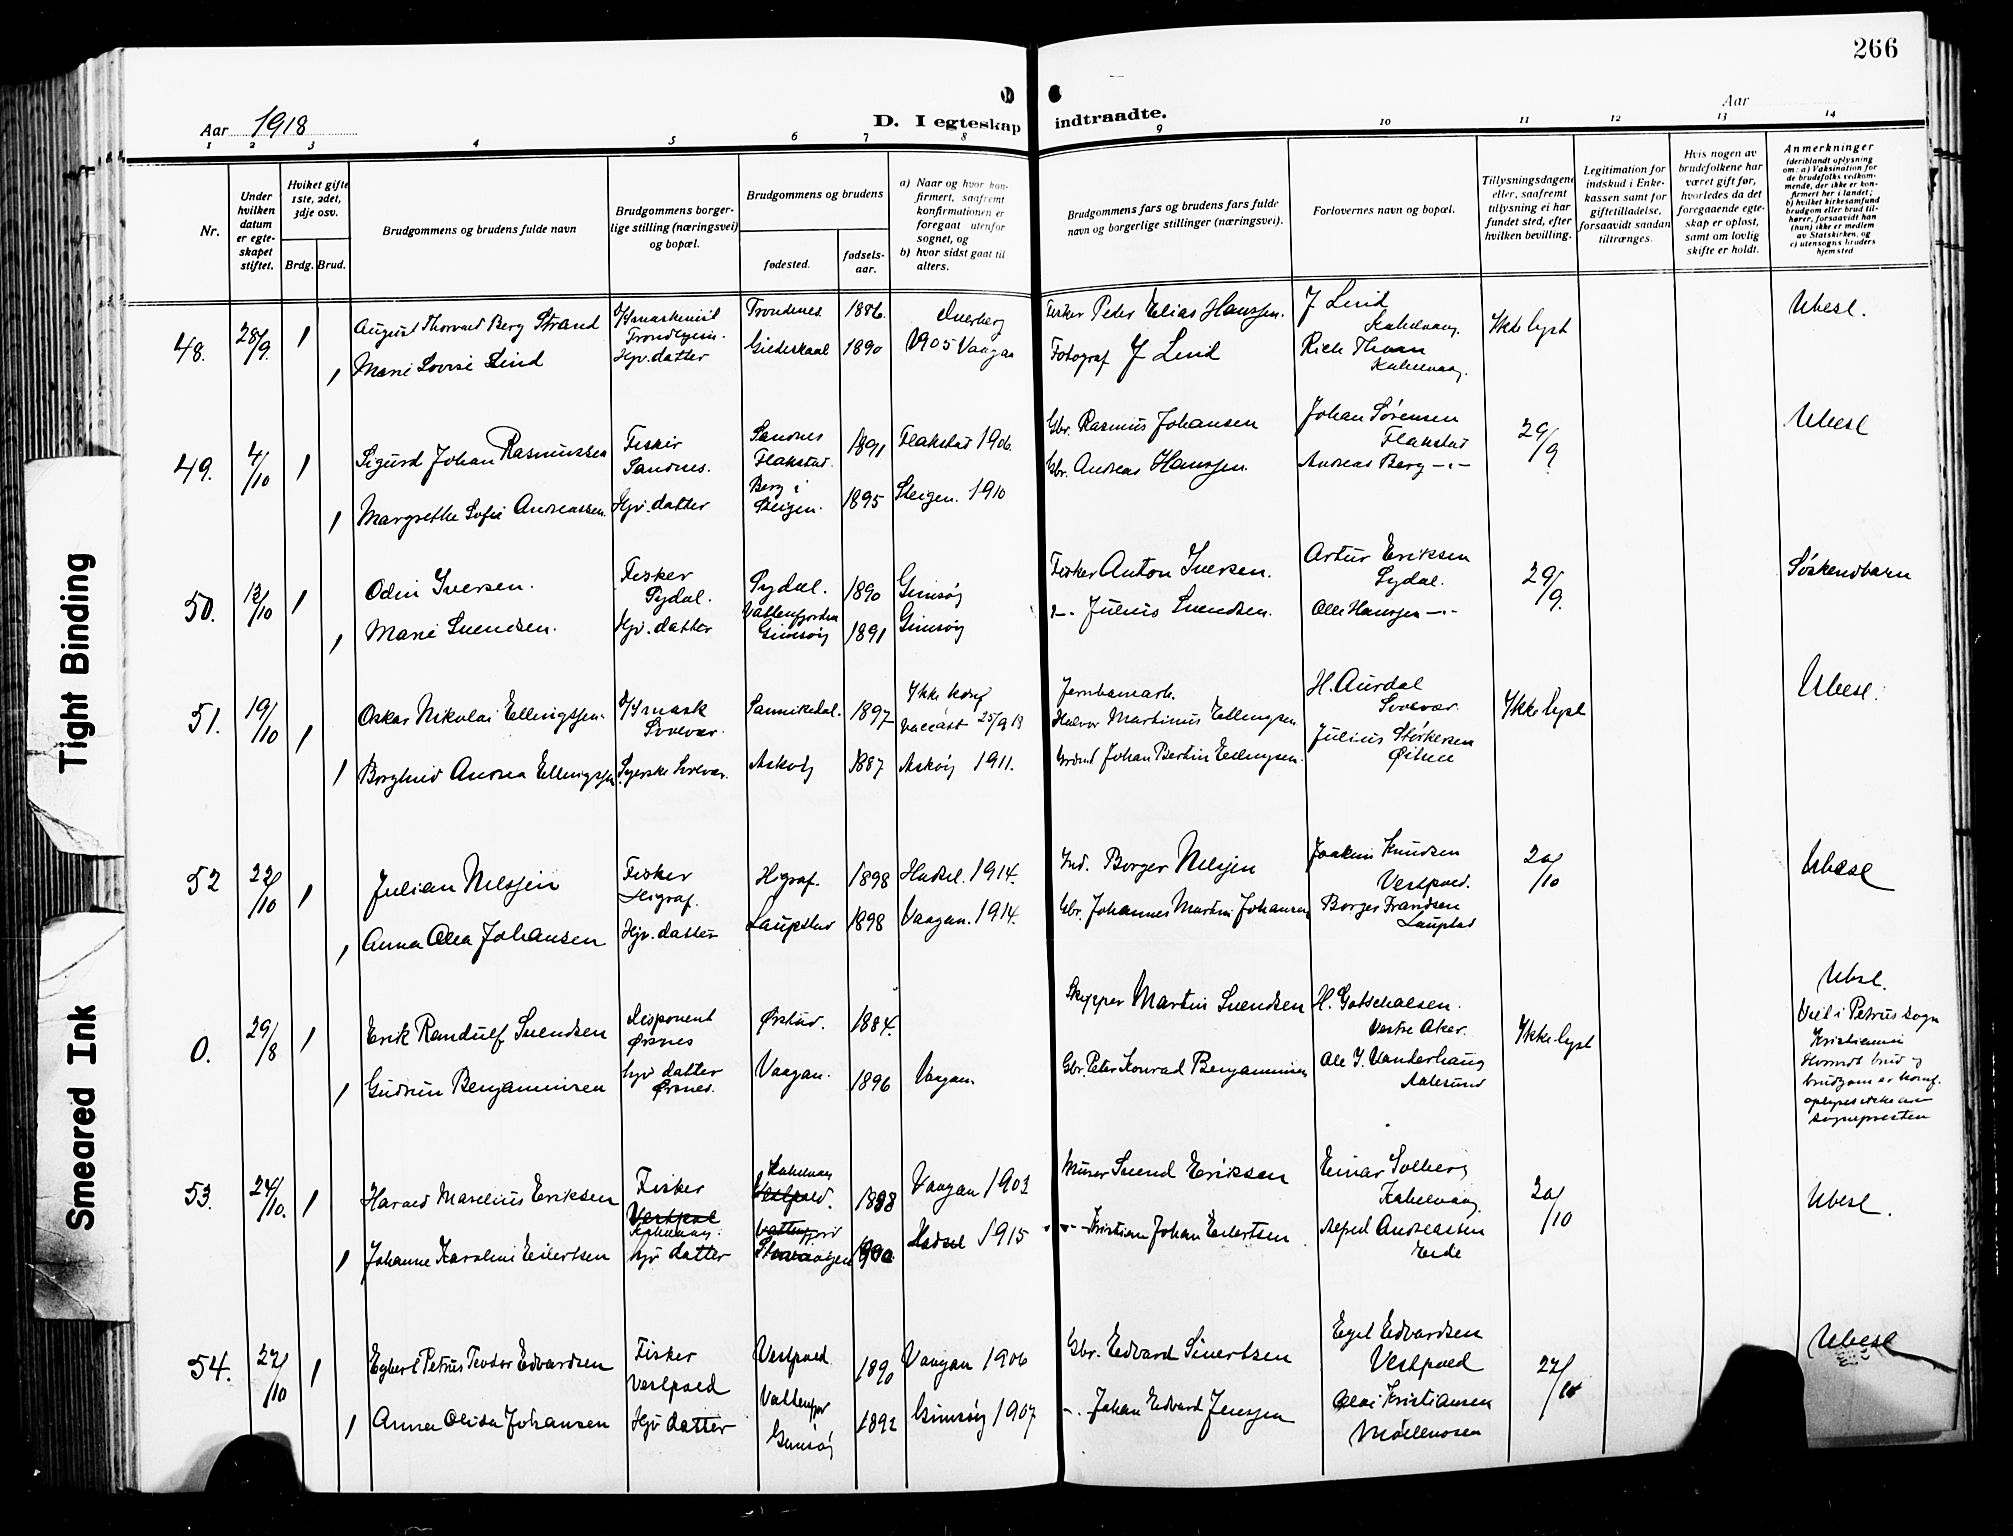 266
Aar 1918
D. I egteskap indtraadte.
Aar
1 2 3 4 5 6 7 8 9 10 11 12 13 14
Nr.
Under hvilken datum er egteskapet stiftet.
Hviket gifte 1ste, 2det, 3dje osv.
Brdg. Brud.
Brudgommens og brudens fulde navn
Brudgommens borgerlige stilling (næringsvei) og bopæl.
Brudgommens og brudens
fødested.
fødselsaar.
a) Naar og hvor konfirmert, saafremt konfirmationen er foregaat utenfor sognet, og
b) hvor sidst gaat til alters.
Brudgommens fars og brudens fars fulde navn og borgerlige stillinger (næringsvei).
Forlovernes navn og bopæl.
Tillysningsdagene eller, saafremt tillysning ei har fundet sted, efter hvilken bevilling.
Legitimation for indskud i Enkekassen samt for giftetilladelse, forsaavidt saadan tiltrænges.
Hvis nogen av brudefolkene har været gift før, hvorledes da det foregaaende egteskap er opløst, samt om lovlig skifte er holdt.
Anmerkninger
(deriblandt oplysning om: a) Vaksination for de brudefolks vedkommende, der ikke er konfirmert her i landet; b) hvilket kirkesamfund brudgom eller brud tilhører, forsaavidt han (hun) ikke er medlem av Statskirken, og c) utensogns bruders hjemsted
48. 28/9. 1 August Thorvald Berg Strand Trondenes 1886. Fisker Peder Elias Hanssen. J Lind Kabelvaag. Ikke lyst Ubesl.
1 Marie Lovise Lind Hjv. datter Gildeskaal 1890 1905 Vaagan Fotograf J Lind Kabelvaag.
49. 4/10 1 Sigurd Johan Rasmussen Fisker Sandnes. Sandnes Flakstad. 1891 Flakstad 1906. Gbr. Rasmus Johansen Johan Sørensen Flakstad 29/9 Ubesl
1 Margrethe Sofie Andreassen. Hjv. datter Berg i Steigen. 1895 Steigen. 1910 Gbr. Andreas Hanssen. Andreas Berg -"-
50. 13/10 1 Odin Iversen. Fisker Sydal. Sydal. 1890 Gimsøy Fisker Anton Iversen. Artur Eriksen Sydal. 29/9. Søskendbarn
1 Marie Svendsen. Hjv. datter Vatterfjorden Gimsøy 1891 Gimsøy -"- Julius Svendsen. Olle Hanssen -"-
51. 19/10 1 Oskar Nikolai Ellingssen. Svolvær. Sannikedal. 1897 Ikke konf Vaccast 25/9 13 Jernbanearb. Halvor Martinus Ellingsen H. Aurdal Svolvær. Ikke lyst Ubesl.
1 Borghild Andrea Ellingssen Syerske Svolvær. Askøy 1887 Askøy 1911. Johan Bertin Ellingsen. Julius Størkersen
52 22/10 1 Julian Nilssen Fisker Higraf. Higraf. 1898 Hadsel. 1914. Ind. Borger Nilssen Joakim Knudsen Vestpold. 20/10 Ubesl
1 Anna Olea Johansen Hjv. datter Laupstad 1898 Vaagan. 1914. Gbr. Johannes Martin Johansen Borger Frandsen Laupstad
0. 29/8 1 Erik Randulf Svendsen Disponent Ørsnes Ørstad. 1884. Skipper Martin Svendsen H. Gotschalsen. Vestre Aker. Ikke lyst Ubesl.
1 Gudrun Benjaminsen hjv datter Ørsnes. Vaagan. 1896 Vaagan. Gbr. Peter Konrad Benjaminsen Ole J. Vanderhaug Aalesund
Viel i Petrus sogn Kristiania Hvornaar brud og brudgom er konf. oplyses ikke av sogneprесten
53. 24/10. 1 Harald Marelius Eriksen Fisker Vestpol Kabelvaag. Kabelvaag Vestpold. 1888 Vaagan 1903 Murer Svend Eriksen Einar Solberg Kabelvaag 20/10 Ubesl.
1 Johanne Karoline Eilertsen hjv datter 1900 Hadsel 1915 -"- Kristian Johan Eilertsen Alfred Andreassen Eide
54. 27/10 1 Egbert Petrus Teodor Edvardsen Fisker Vestpold Vestpold 1890 Vaagan 1906 Gbr. Edvard Sivertsen Egil Edvardsen Vestpold 27/10 Ubesl
1 Anna Olida Johansen Hjv datter Gimsøy 1892 Gimsøy 1907 -"- Johan Edvard Jenssen Olai Kristiansen Møllenosen
Tight Binding
Smeared Ink